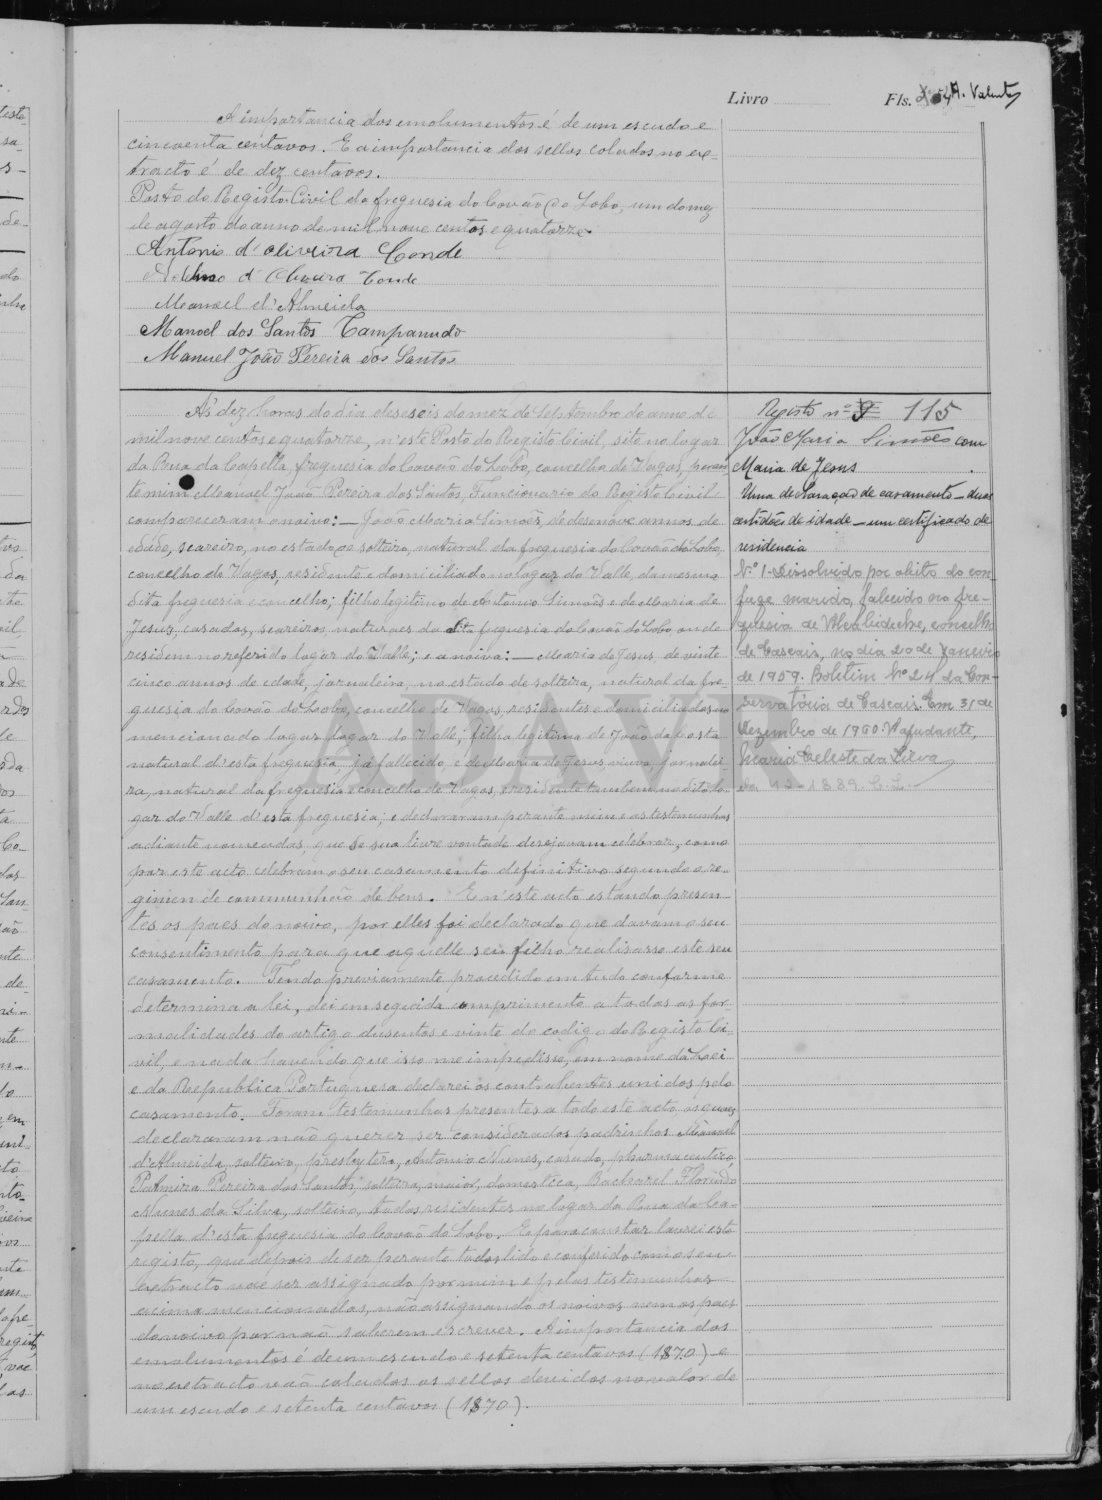 Livro
Fls. A. Valente
A importancia dos emolumentos é de um escudo e
cincoenta centavos. E a importancia dos sellos colados no ex-
tracto é de dez centavos.
Posto do Registo Civil da freguesia do Covão do Lobo, um do mez
de agosto do anno de mil nove centos e quatorze
Antonio d'Oliveira Conde
d'Oliveira Conde
Manoel d'Almeida
Manoel dos Santos Campanudo
Manuel João Pereira dos Santos
Ás dez horas do dia deseseis do mez de Setembro do anno de
mil nove centos e quatorze, n'este Posto do Registo Civil, sito no logar
da Rua da Capella, freguesia do Covão do Lobo, concelho de Vagos, peran-
te mim Manuel João Pereira dos Santos, Funcionario do Registo Civil
compareceram o noivo: — João Maria Simões, de desenove annos de
edade, seareiro, no estado de solteiro, natural da freguesia do Covão do Lobo,
concelho de Vagos, residente e domiciliado no logar do Valle, da mesma
dita freguesia e concelho; filho legitimo de Antonio Simões e de Maria de
Jesus, casados, seareiros, naturaes da dita freguesia do Covão do Lobo onde
residem no referido logar do Valle; e a noiva: — Maria de Jesus, de vinte
cinco annos de edade, jornaleira, no estado de solteira, natural da fre-
guesia do Covão do Lobo, concelho de Vagos, residentes e domiciliados no
mencionado logar, logar do Valle; filha legitima de João da Costa
natural d'esta freguesia já fallecido, e de Maria de Jesus, viuva, jornalei-
ra, natural da freguesia e concelho de Vagos, e residente tambem no dito lo-
gar do Valle d'esta freguesia; e declararam perante mim e as testemunhas
adiante nomeadas, que de sua livre vontade desejavam celebrar, como
por este acto celebram o seu casamento definitivo segundo o re-
gimen de communhão de bens. E n'este acto estando presen-
tes os paes do noivo, por elles foi declarado que davam o seu
consentimento para que aquelle seu filho realisasse este seu
casamento. Tendo previamente procedido em tudo conforme
determina a lei, dei em seguida comprimento a todas as for-
malidades do artigo dusentos e vinte do codigo do Registo Ci-
vil, e nada havendo que isso me impedisse, em nome da Lei
e da Republica Portuguesa declarei os contrahentes unidos pelo
casamento. Foram testemunhas presentes a todo este acto, as quaes
declararam não querer ser considerados padrinhos Manuel
d'Almeida, solteiro, presbytero, Antonio Nunes, casado, pharmaceutico,
Palmira Pereira dos Santos, solteira, maior, domestica, Bacharel Florindo
Nunes da Silva, solteiro, todos residentes no logar da Rua da Ca-
pella d'esta freguesia do Covão do Lobo. E para constar lavrei este
registo, que depois de ser perante todos lido e conferido com o seu
extracto vae ser assignado por mim e pelas testemunhas
acima mencionadas, não assignando os noivos nem os paes
do noivo por não saberem escrever. A importancia dos
emolumentos é de um escudo e setenta centavos (1$70) e
no extracto vão colados os sellos devidos no valor de
um escudo e setenta centavos (1$70).
Registo nº 9 115
João Maria Simões com
Maria de Jesus
Uma declaração de casamento — duas
certidões de idade — um certificado de
residencia
N.º 1 - Dissolvido por obito do con-
juge marido, falecido na fre-
guesia de Alcabideche, concelho
de Cascais, no dia 20 de Janeiro
de 1959. Boletim Nº 24 da Con-
servatória de Cascais. Em 31 de
Dezembro de 1960. A ajudante,
Maria Celeste da Silva
ADAVR